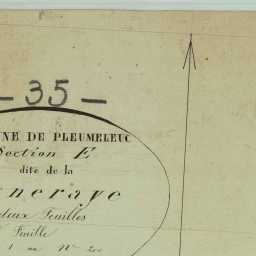 - 35 -
NE DE PLEUMELEUC
Section E
dite de la
neraye
deux Feuilles
Feuille
1 au N° 200